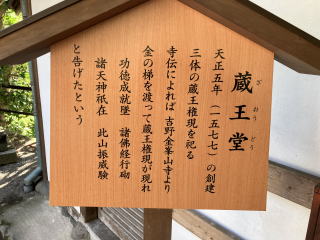 蔵王堂
ざおうどう
天正五年（一五七七）の創建
三体の蔵王権現を祀る
寺伝によれば吉野金峯山寺より
金の梯を渡って蔵王権現が現れ
功徳成就墜　諸佛経行砌
諸天神祇在　此山振威験
と告げたという